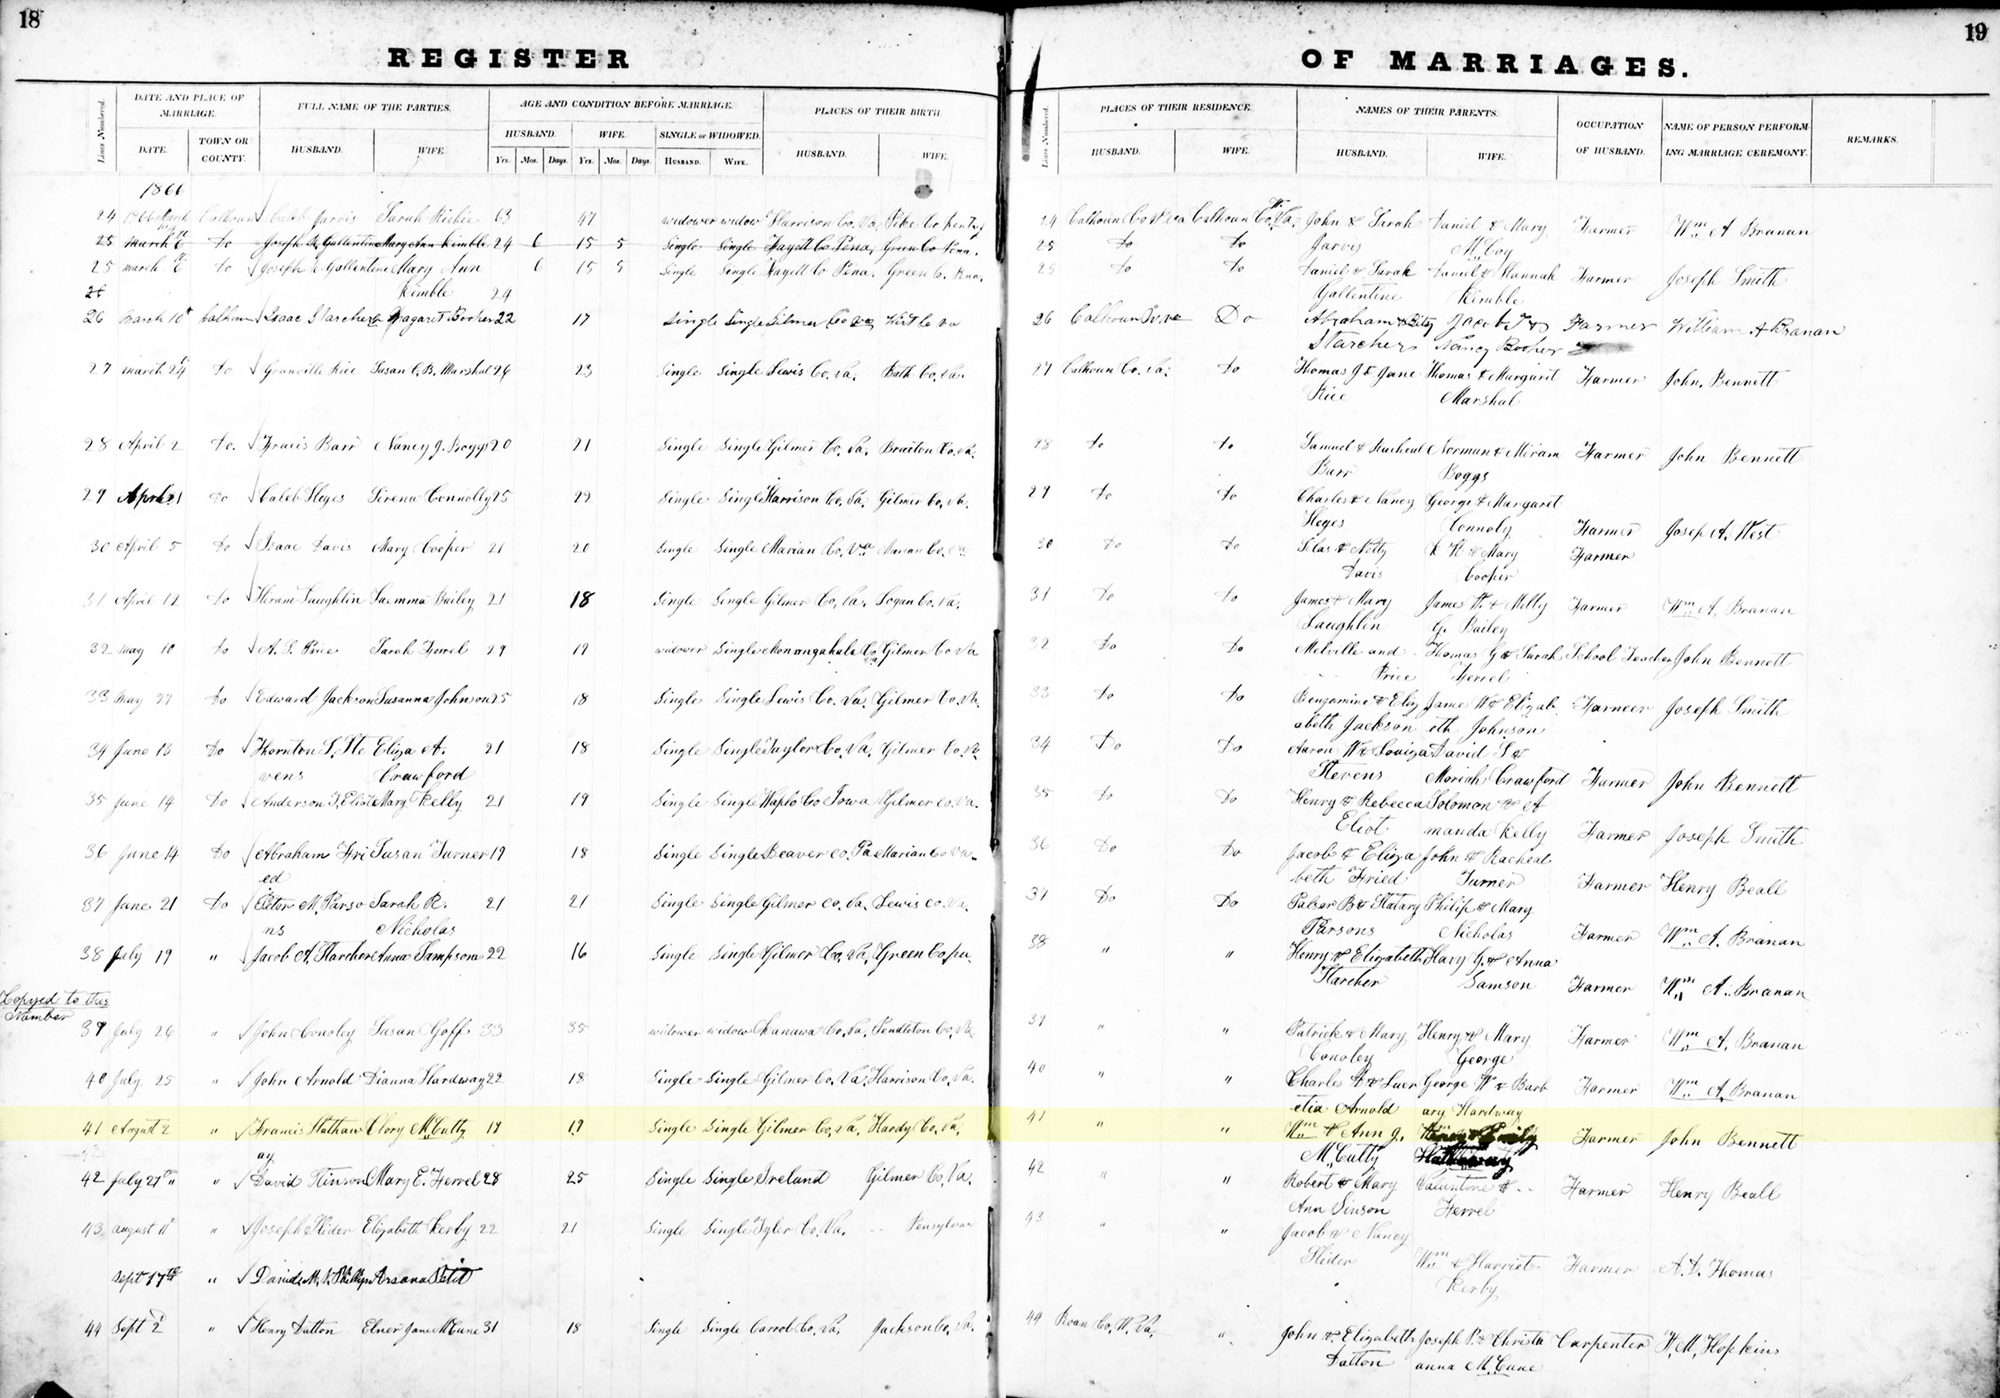 18
19
REGISTER
OF MARRIAGES.
Lines Numbered.
DATE AND PLACE OF MARRIAGE.
FULL NAME OF THE PARTIES.
AGE AND CONDITION BEFORE MARRIAGE.
PLACES OF THEIR BIRTH
DATE.
TOWN OR COUNTY.
HUSBAND.
WIFE.
HUSBAND.
WIFE.
SINGLE or WIDOWED.
HUSBAND.
WIFE.
Yrs. Mos. Days. Yrs. Mos. Days. HUSBAND. WIFE.
Lines Numbered.
PLACES OF THEIR RESIDENCE.
NAMES OF THEIR PARENTS.
OCCUPATION OF HUSBAND.
NAME OF PERSON PERFORMING MARRIAGE CEREMONY.
REMARKS.
HUSBAND.
WIFE.
HUSBAND.
WIFE.
1866
24 Calhoun Caleb Jarvis Sarah Richie 63 47 widower widow Harrison Co. Va.
24 Calhoun Co. Calhoun Co. Va. John & Sarah Daniel & Mary Farmer Wm A Branan
25 March Do Joseph Gallentine Mary Ann Kimble 24 6 15 5 Single Single Fayett Co Pena. Green Co Pena.
25 Do Do Jarvis McCoy
25 March Do Joseph Gallentine Mary Ann 6 15 5 Single Single Fayett Co Pena. Green Co.
25 Do Do Daniel & Sarah Daniel & Hannah Farmer Joseph Smith
Kimble 24
Gallentine Kimble
26 March 10 Calhoun Isaac Starcher Magaret Booher 22 17 Single Single Gilmer Co Va Wirt Co Va
26 Calhoun Do Abraham & Jacob & Farmer William A Branan
Starcher Nancy Booher
27 March 24 Do Granville Rice Susan C. B. Marshal 26 23 Single Single Lewis Co. Va. Bath Co. Va.
27 Calhoun Co. Va. Do Thomas J & Jane Thomas & Margaret Farmer John Bennett
Rice Marshal
28 April 2 Do. Francis Barr Nancy J. Boggs 20 21 Single Single Gilmer Co. Va. Braxton Co. Va.
28 Do Do Samuel & Racheal Norman & Miram Farmer John Bennett
Barr Boggs
29 April 21 Do Caleb Heyes Sirena Connolly 25 22 Single Single Harrison Co. Va. Gilmer Co. Va.
29 Do Do Charles & Nancy George & Margaret
Heyes Connoly Farmer Josep A. West
30 April 5 Do Isaac Davis Mary Cooper 21 20 Single Single Marian Co. Va Marian Co. Va
30 Do Do Silas & & Mary Farmer
Davis Cooper
31 April 12 Do Hiram Laughlin Bailey 21 18 Single Single Gilmer Co. Va. Logan Co. Va.
31 Do Do James & Mary James & Milly Farmer Wm A. Branan
Laughlin G. Bailey
32 May 10 Do A. S. Price Sarah Ferrel 29 19 widower Single Monongahala Co Gilmer Co Va
32 Do Do Melville and Thomas G & Sarah School Teacher John Bennett
Price Ferrel
33 May 27 Do Edward Jackson Susanna Johnson 25 18 Single Single Lewis Co. Va. Gilmer Co. Va.
33 Do Do Benjamine & Eliz James W & Elizab Farmeer Joseph Smith
abeth Jackson eth Johnson
34 June 13 Do Thornton S. Ste Eliza A. 21 18 Single Single Taylor Co. Va. Gilmer Co. Va
34 Do Do Aaron W & Louiza David S &
vens Crawford
Stevens Moriah Crawford Farmer John Bennett
35 June 14 Do Anderson Eliot Mary Kelly 21 19 Single Single Waplo Co Iowa Gilmer Co. Va.
35 Do Do Henry & Rebecca Solomon & A
Eliot manda Kelly Farmer Joseph Smith
36 June 14 Do Abraham Fri Susan Turner 19 18 Single Single Beaver Co. Pa Marian Co Va.
36 Do Do Jacob & Eliza John & Racheal
ed
beth Fried Turner Farmer Henry Beall
37 June 21 Do Peter M. Parso Sarah R. 21 21 Single Single Gilmer Co. Va. Lewis Co. Va.
37 Do Do B & Philip & Mary
ns Nicholas
Parsons Nicholas Farmer Wm A. Branan
38 July 19 " Jacob A. Starcher Anna Sampson 22 16 Single Single Gilmer Co. Va. Green Co. pa.
38 " " Henry & Elizabeth & Anna
Starcher Samson Farmer Wm A. Branan
Copyed to this
Number
39 July 26 " John Conoley Susan Goff 33 35 widower widow Kanawa Co. Va. Pendleton Co. Va
39 " " Patrick & Mary Henry & Mary Farmer Wm A. Branan
Conoley George
40 July 25 " John Arnold Dianna Hardway 22 18 Single Single Gilmer Co. Va. Harrison Co. Va.
40 " " Charles & Lucr George W & Barb Farmer Wm A Branan
etia Arnold ary Hardway
41 August 2 " Francis Hathaw Clory McCutty 19 19 Single Single Gilmer Co. Va. Hardy Co. Va.
41 " " Wm & Ann J. Farmer John Bennett
ay
McCutty Hathaway
42 July 27th " David Stinson Mary E. Ferrel 28 25 Single Single Ireland Gilmer Co. Va.
42 " " Robert & Mary Valentine & Farmer Henry Beall
Ann Sinson Ferrel
43 August 11 " Joseph Slider Elizabeth Kerby 22 21 Single Single Tyler Co. Va. Pensylvan
43 " " Jacob & Nancy
Slider Wm & Harriet Farmer A. D. Thomas
Kerby
Sept 17th "
44 Sept 2 " Henry Datton Elner Jane McCune 31 18 Single Single Carrol Co. Va. Jackson Co. Va.
44 Roan Co. W. Va. " John & Elizabeth Joseph P. & Christa Carpenter Hopkins
Datton anna McCune